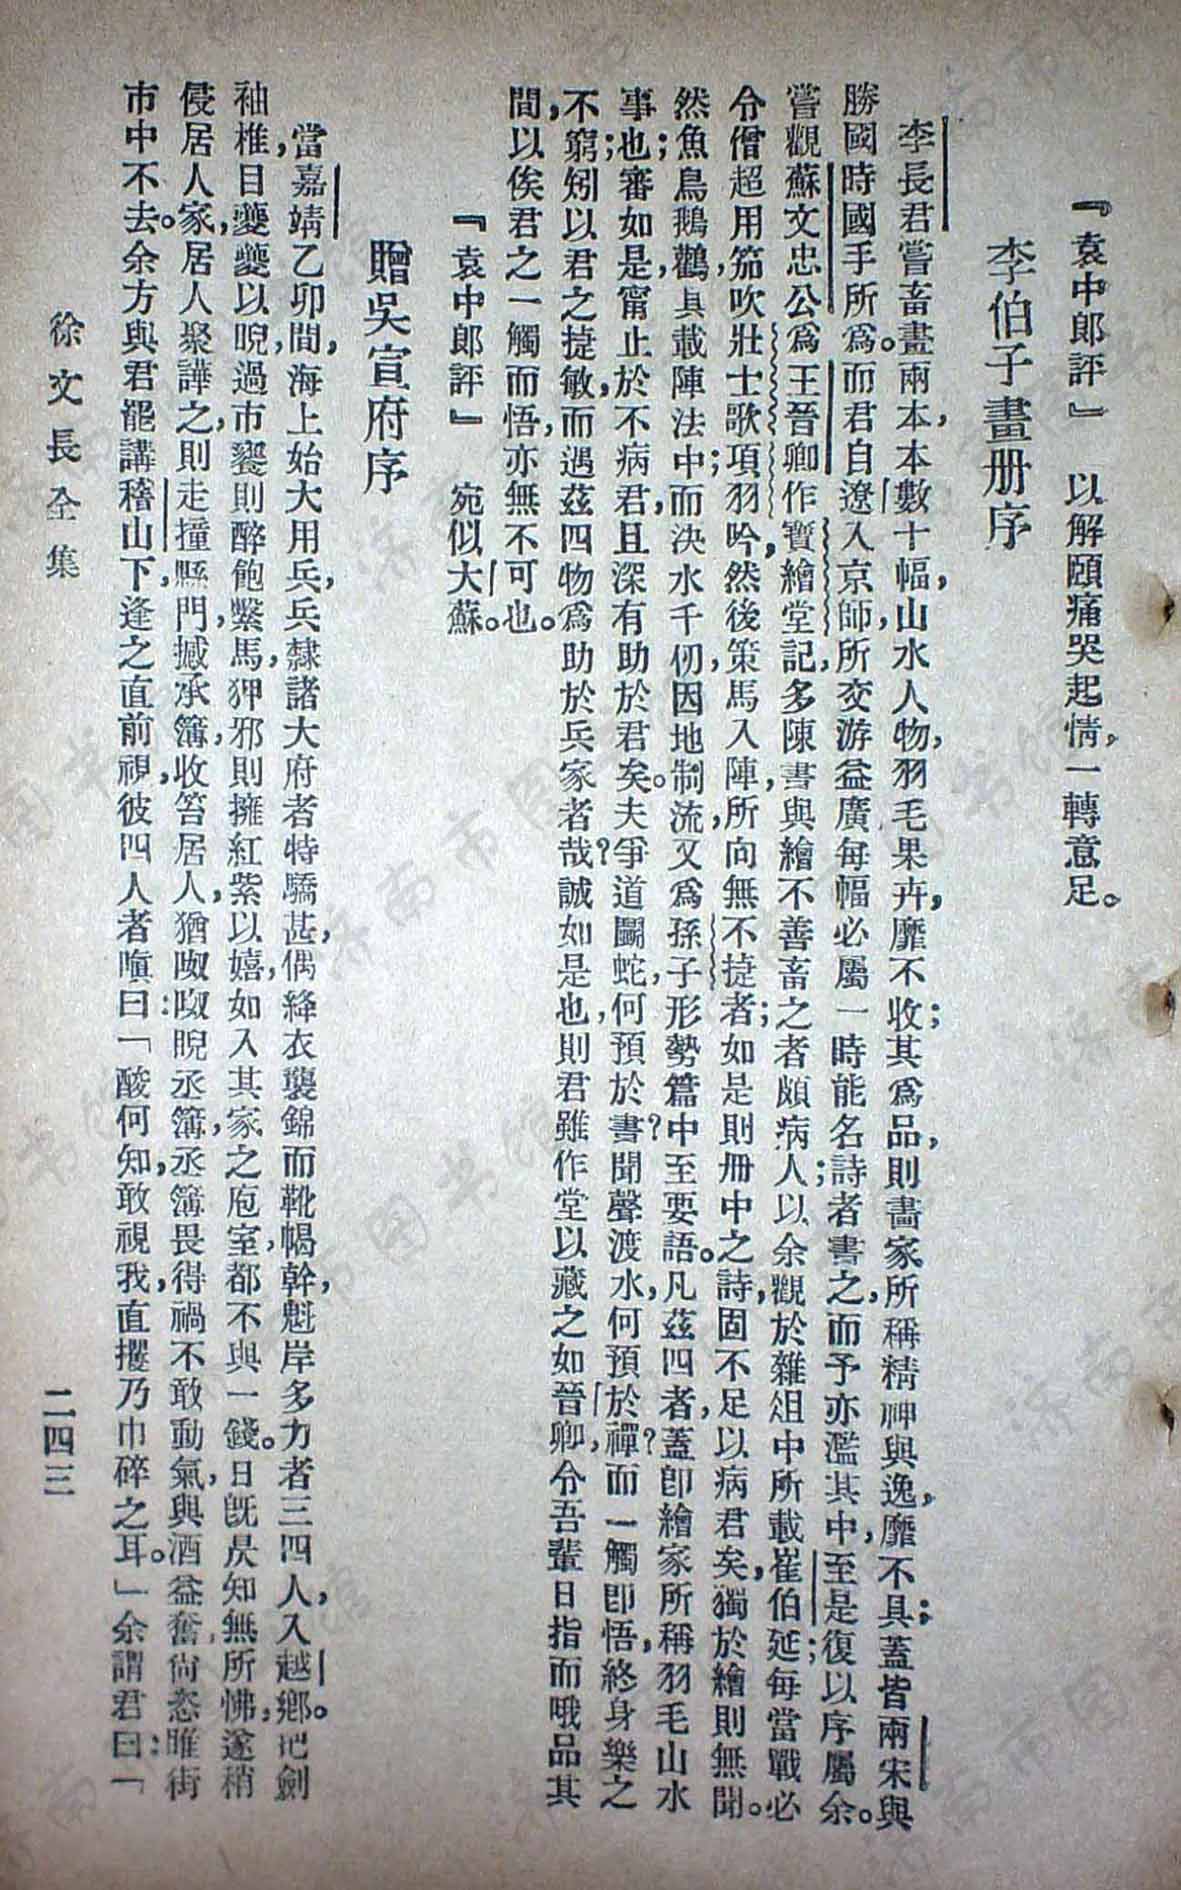 『袁中郎評』　以解頤痛哭起情，一轉意足。
李伯子畫册序
李長君嘗畜畫兩本，本數十幅，山水人物，羽毛果卉，靡不收；其爲品，則畫家所稱精神與逸，靡不具；蓋皆兩宋與
勝國時國手所爲。而君自遼入京師，所交游益廣，每幅必屬一時能名詩者書之，而予亦濫其中；至是復以序屬余。
嘗觀蘇文忠公爲王晉卿作寶繪堂記，多陳書與繪不善畜之者頗病人；以余觀於雜俎中所載，崔伯延每當戰，必
令僧超用笳吹壯士歌，項羽吟，然後策馬入陣，所向無不捷者；如是則册中之詩，固不足以病君矣，獨於繪則無聞。
然魚鳥鵝鸛，具載陣法中；而決水千仞，因地制流，又爲孫子形勢篇中至要語。凡茲四者，蓋卽繪家所稱羽毛山水
事也；審如是，甯止於不病君，且深有助於君矣。夫爭道鬭蛇，何預於書？聞聲渡水，何預於禪？而一觸卽悟，終身樂之
不窮；矧以君之捷敏，而遇茲四物爲助於兵家者哉？誠如是也，則君雖作堂以藏之如晉卿，令吾輩日指而哦品其
間，以俟君之一觸而悟，亦無不可也。
『袁中郎評』　宛似大蘇。
贈吳宣府序
當嘉靖乙卯間，海上始大用兵，兵隸諸大府者特驕甚，偶絳衣襲錦而靴幬幹，魁岸多力者三四人，入越鄉。把劍
袖椎，目夔夔以睨，過市饗則醉飽繫馬，狎邪則擁紅紫以嬉，如入其家之庖室，都不與一錢。日旣昃，知無所怫，遂稍
侵居人家，居人聚譁之，則走撞縣門，撼丞簿，收笞居人，猶呶呶睨丞簿，丞簿畏得禍，不敢動氣，與酒益奮，尙恣睢街
市中不去。余方與君罷講稽山下，逢之直前視，彼四人者嗔曰：「酸何知，敢視我，直攫乃巾碎之耳。」余謂君曰：「
徐文長全集
二四三